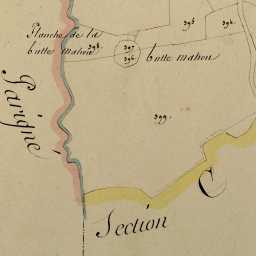 Planche de la
butte mahou
398.
397
396.
butte mahou
395
394.
399.
Parigné
C
Section